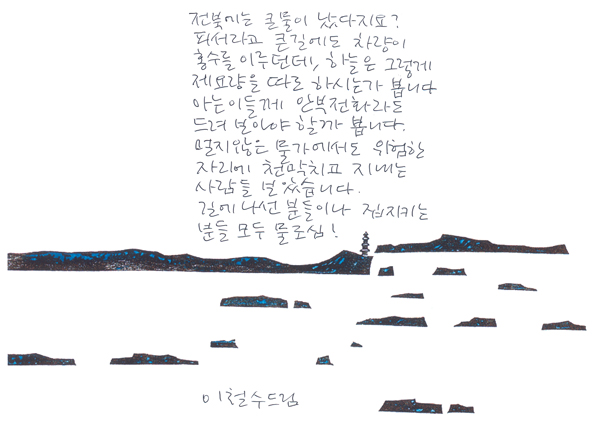 전북에는 큰물이 났다지요?
피서라고 큰길에도 차량이
홍수를 이루던데, 하늘은 그렇게
제요량을 따로 하시는가 봅니다
아는이들께 안부전화라도
드려 보아야 할까 봅니다.
멀지않은 물가에서도 위험한
자리에 천막치고 지내는
사람들 보았습니다.
길에 나선 분들이나 집지키는
분들 모두 물조심!
이철수드림